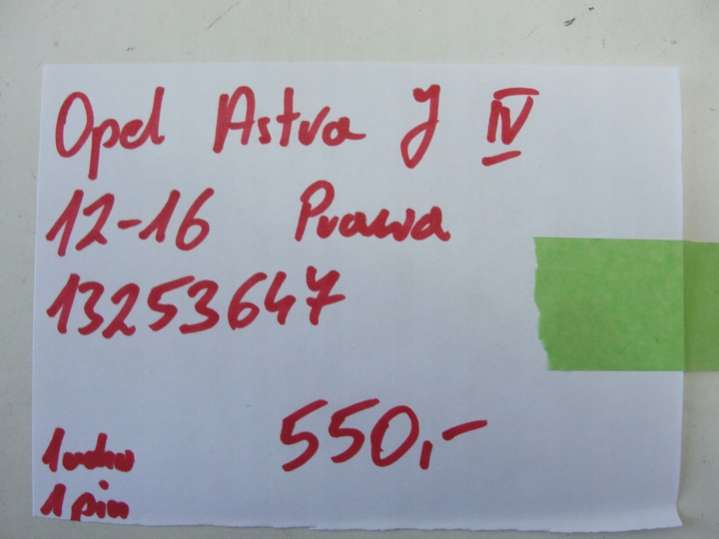 Opel Astra J IV
12-16 Prawa
13253647
550,-
1 ucho
1 pin